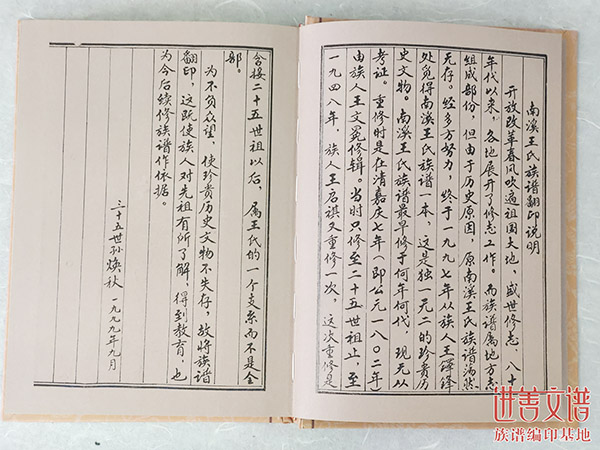 南溪王氏族谱翻印说明
开放改革春风吹遍祖国大地，盛世修志，八十
年代以来，各地展开了修志工作。而族谱属地方志
组成部份，但由于历史原因，原南溪王氏族谱荡然
无存。经多方努力，终于一九九七年从族人王铎铎
处觅得南溪王氏族谱一本，这是独一无二的珍贵历
史文物。南溪王氏族谱最早修于何年何代，现无从
考证。重修时是在清嘉庆七年（即公元一八〇二年）
由族人王文冕修辑。当时只修至二十五世祖止，至
一九四八年，族人王启祺又重修一次，这次重修是
含接二十五世祖以后，属王氏的一个支系而不是全
部。
为不负众望，使珍贵历史文物不失存，故将族谱
翻印，这既使族人对先祖有所了解，得到教育，也
为今后续修族谱作依据。
三十五世孙焕秋 一九九九年九月
世善文谱
族谱编印基地